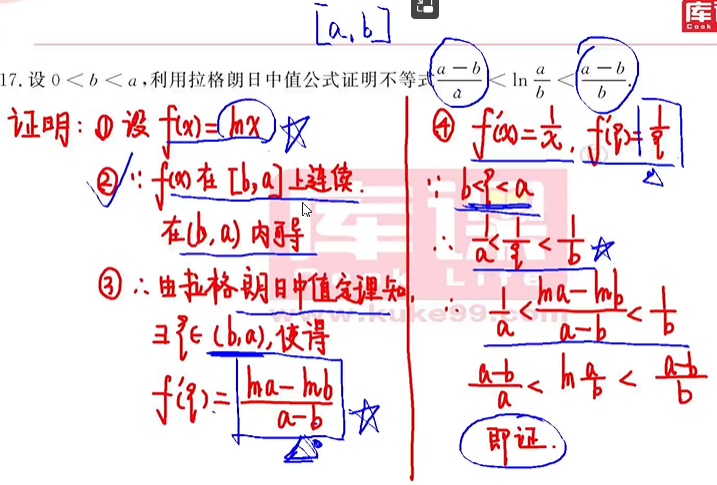 [a,b]
库课
Cook
17. 设 0 < b < a, 利用拉格朗日中值公式证明不等式 (a-b)/a < ln a/b < (a-b)/b.
证明: ① 设 f(x)=lnx
② ∵ f(x) 在 [b,a] 上连续.
在(b,a) 内可导
③ ∴ 由拉格朗日中值定理知,
∃ξ∈(b,a), 使得
f'(ξ)= (lna-lnb)/(a-b)
④ f'(x)=1/x, f'(ξ)=1/ξ
∵ b<ξ<a
∴ 1/a < 1/ξ < 1/b
∴ 1/a < (lna-lnb)/(a-b) < 1/b
(a-b)/a < ln a/b < (a-b)/b
即证.
库课
Cook Live
www.kuke99.com